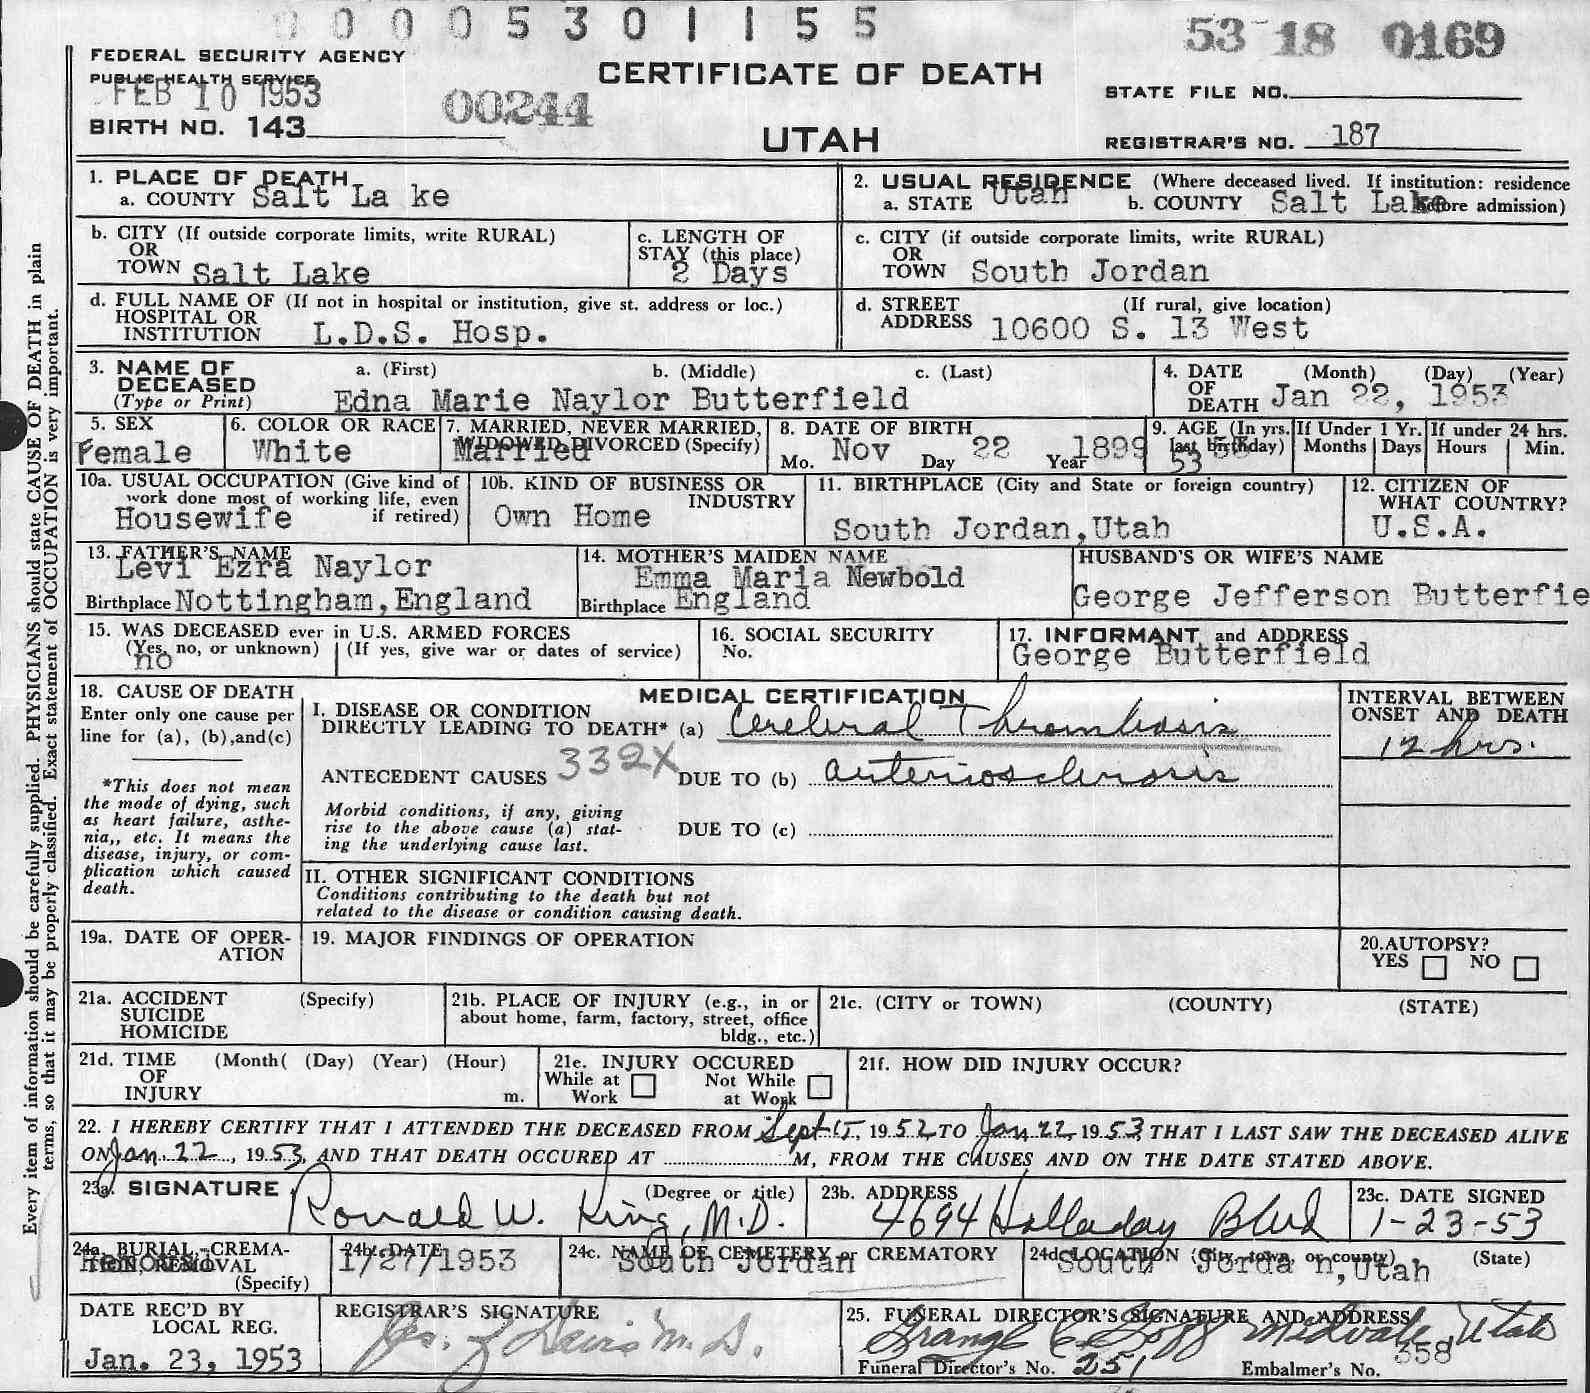 0 0 0 0 5 3 0 1 1 5 5
53 18 0169
FEDERAL SECURITY AGENCY
PUBLIC HEALTH SERVICE
FEB 10 1953
00244
CERTIFICATE OF DEATH
STATE FILE NO.
BIRTH NO. 143
UTAH
REGISTRAR'S NO. 187
1. PLACE OF DEATH
a. COUNTY Salt La ke
2. USUAL RESIDENCE (Where deceased lived. If institution: residence before admission)
a. STATE Utah b. COUNTY Salt Lake
b. CITY (If outside corporate limits, write RURAL)
OR
TOWN Salt Lake
c. LENGTH OF
STAY (this place)
2 Days
c. CITY (if outside corporate limits, write RURAL)
OR
TOWN South Jordan
d. FULL NAME OF (If not in hospital or institution, give st. address or loc.)
HOSPITAL OR
INSTITUTION L.D.S. Hosp.
d. STREET (If rural, give location)
ADDRESS 10600 S. 13 West
3. NAME OF DECEASED
(Type or Print)
a. (First) b. (Middle) c. (Last)
Edna Marie Naylor Butterfield
4. DATE OF DEATH (Month) (Day) (Year)
Jan 22, 1953
5. SEX
Female
6. COLOR OR RACE
White
7. MARRIED, NEVER MARRIED,
WIDOWED, DIVORCED (Specify)
Married
8. DATE OF BIRTH
Mo. Nov Day 22 Year 1899
9. AGE (In yrs. last birthday)
53
If Under 1 Yr.
Months Days
If under 24 hrs.
Hours Min.
10a. USUAL OCCUPATION (Give kind of
work done most of working life, even
if retired)
Housewife
10b. KIND OF BUSINESS OR
INDUSTRY
Own Home
11. BIRTHPLACE (City and State or foreign country)
South Jordan,Utah
12. CITIZEN OF
WHAT COUNTRY?
U.S.A.
13. FATHER'S NAME
Levi Ezra Naylor
Birthplace Nottingham,England
14. MOTHER'S MAIDEN NAME
Emma Maria Newbold
Birthplace England
HUSBAND'S OR WIFE'S NAME
George Jefferson Butterfie
15. WAS DECEASED ever in U.S. ARMED FORCES
(Yes, no, or unknown) (If yes, give war or dates of service)
no
16. SOCIAL SECURITY
No.
17. INFORMANT and ADDRESS
George Butterfield
18. CAUSE OF DEATH
Enter only one cause per
line for (a), (b),and(c)
*This does not mean
the mode of dying, such
as heart failure, asthe-
nia,, etc. It means the
disease, injury, or com-
plication which caused
death.
MEDICAL CERTIFICATION
I. DISEASE OR CONDITION
DIRECTLY LEADING TO DEATH* (a) Cerebral Thrombosis
ANTECEDENT CAUSES 332X DUE TO (b) arteriosclerosis
Morbid conditions, if any, giving
rise to the above cause (a) stat-
ing the underlying cause last.
DUE TO (c)
II. OTHER SIGNIFICANT CONDITIONS
Conditions contributing to the death but not
related to the disease or condition causing death.
INTERVAL BETWEEN
ONSET AND DEATH
12 hrs.
19a. DATE OF OPER-
ATION
19. MAJOR FINDINGS OF OPERATION
20.AUTOPSY?
YES NO
21a. ACCIDENT (Specify)
SUICIDE
HOMICIDE
21b. PLACE OF INJURY (e.g., in or
about home, farm, factory, street, office
bldg., etc.)
21c. (CITY or TOWN) (COUNTY) (STATE)
21d. TIME (Month( (Day) (Year) (Hour)
OF
INJURY m.
21e. INJURY OCCURED
While at Work Not While at Work
21f. HOW DID INJURY OCCUR?
22. I HEREBY CERTIFY THAT I ATTENDED THE DECEASED FROM Sept 15, 1952 TO Jan 22, 1953, THAT I LAST SAW THE DECEASED ALIVE
ON Jan. 22, 1953, AND THAT DEATH OCCURED AT M, FROM THE CAUSES AND ON THE DATE STATED ABOVE.
23a. SIGNATURE (Degree or title)
Ronald W. King, M.D.
23b. ADDRESS
4694 Holladay Blvd
23c. DATE SIGNED
1-23-53
24a. BURIAL, CREMA-
TION, REMOVAL
(Specify)
Removal
24b. DATE
1/27/1953
24c. NAME OF CEMETERY or CREMATORY
South Jordan
24d. LOCATION (City, town, or county) (State)
South Jorda n,Utah
DATE REC'D BY
LOCAL REG.
Jan. 23, 1953
REGISTRAR'S SIGNATURE
25. FUNERAL DIRECTOR'S SIGNATURE AND ADDRESS
Midvale, Utah
Funeral Director's No. 251
Embalmer's No. 358
Every item of information should be carefully supplied. PHYSICIANS should state CAUSE OF DEATH in plain
terms, so that it may be properly classified. Exact statement of OCCUPATION is very important.